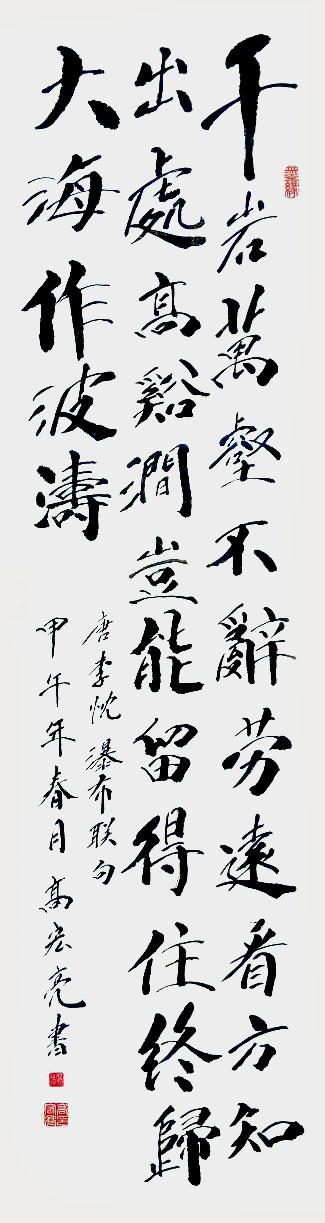 千岩萬壑不辭劳遠看方知
出處高谿澗豈能留得住終歸
大海作波濤
唐李忱瀑布联句
甲午年春月高宏亮書